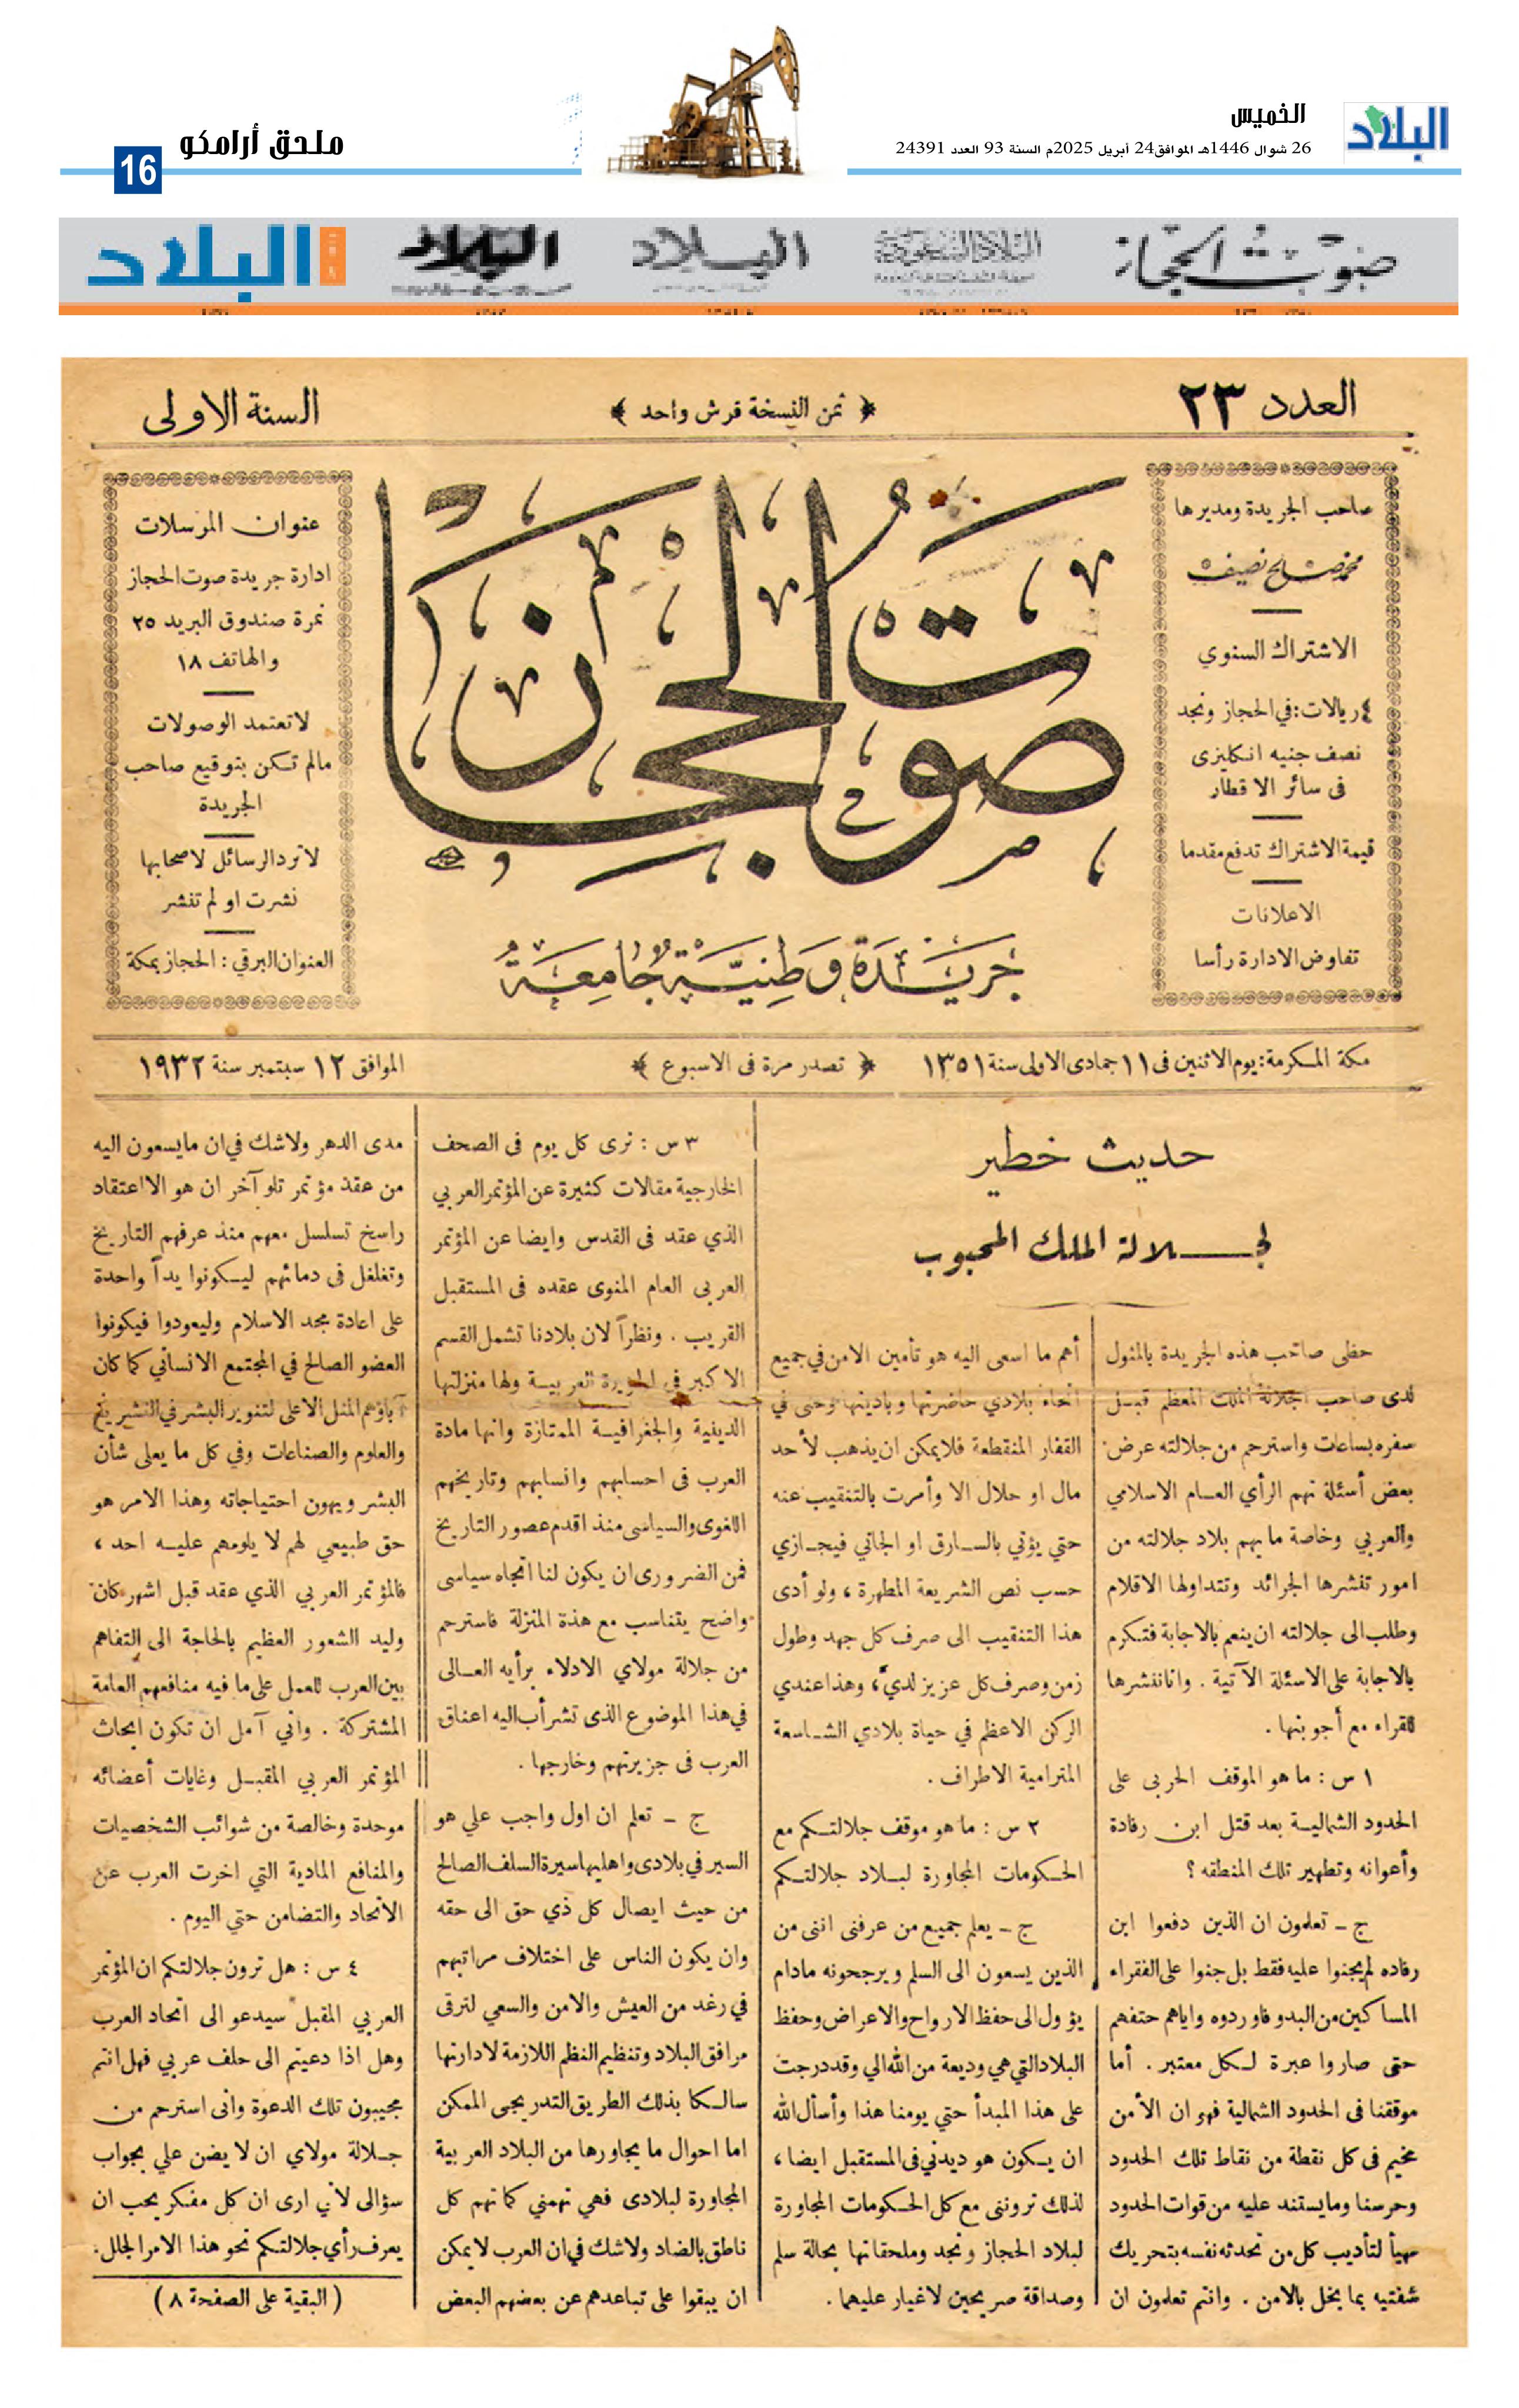 البلاد
الخميس
26 شوال 1446هـ الموافق24 أبريل 2025م السنة 93 العدد 24391
ملحق أرامكو
16
صوت الحجاز
البلاد السعودية
البلاد
البلاد
البلاد
العدد ٢٣
﴿ ثمن النسخة قرش واحد ﴾
السنة الاولى
صاحب الجريدة ومديرها
محمد صالح نصيف
الاشتراك السنوي
٤ ريالات: في الحجاز ونجد
نصف جنيه انكليزى
فى سائر الاقطار
قيمة الاشتراك تدفع مقدما
الاعلانات
تفاوض الادارة رأسا
صوت الحجاز
جريدة وطنية جامعة
عنوان المرسلات
ادارة جريدة صوت الحجاز
نمرة صندوق البريد ٢٥
والهاتف ١٨
لا تعتمد الوصولات
مالم تكن بتوقيع صاحب
الجريدة
لا ترد الرسائل لاصحابها
نشرت او لم تنشر
العنوان البرقي: الحجاز بمكة
مكة المكرمة: يوم الاثنين فى ١١ جمادى الاولى سنة ١٣٥١
﴿ تصدر مرة فى الاسبوع ﴾
الموافق ١٢ سبتمبر سنة ١٩٣٢
حديث خطير
لجـلالة الملك المحبوب
حظى صاحب هذه الجريدة بالمثول
لدى صاحب الجلالة الملك المعظم قبـل
سفره بساعات واسترحم من جلالته عرض
بعض أسئلة تهم الرأي العـام الاسلامي
والعربي وخاصة ما يهم بلاد جلالته من
امور تنشرها الجرائد وتتداولها الاقلام
وطلب الى جلالته ان ينعم بالاجابة فتكرم
بالاجابة على الاسئلة الآتية . وانا ننشرها
للقراء مع أجوبتها .
١ س : ما هو الموقف الحربى على
الحدود الشماليـة بعد قتل ابن رفادة
وأعوانه وتطهير تلك المنطقه ؟
ج ـ تعلمون ان الذين دفعوا ابن
رفاده لم يجنوا عليه فقط بل جنوا على الفقراء
المساكين من البدو فاوردوه واياهم حتفهم
حتى صاروا عبرة لـكل معتبر . أما
موقفنا فى الحدود الشمالية فهو ان الأمن
مخيم فى كل نقطة من نقاط تلك الحدود
وحرسنا وما يستند عليه من قوات الحدود
مهيأ لتأديب كل من تحدثه نفسه بتحريك
شفتيه بما يخل بالامن . وانتم تعلمون ان
أهم ما اسعى اليه هو تأمين الامن في جميع
أنحاء بلادي حاضرتها وباديتها وحتى في
القفار المنقطعة فلا يمكن ان يذهب لأحد
مال او حلال الا وأمرت بالتنقيب عنه
حتي يؤتي بالسـارق او الجاني فيجـازي
حسب نص الشريعة المطهرة ، ولو أدى
هذا التنقيب الى صرف كل جهد وطول
زمن وصرف كل عزيز لدي ، وهذا عندي
الركن الاعظم في حياة بلادي الشـاسعة
المترامية الاطراف .
٢ س : ما هو موقف جلالتـكم مع
الحـكومات المجاورة لبـلاد جلالتـكم
ج ـ يعلم جميع من عرفنى اننى من
الذين يسعون الى السلم ويرجحونه مادام
يؤول الى حفظ الارواح والاعراض وحفظ
البلاد التي هي وديعة من الله الي وقد درجت
على هذا المبدأ حتي يومنا هذا وأسأل الله
ان يـكون هو ديدني فى المستقبل ايضا ،
لذلك تروننى مع كل الحـكومات المجاورة
لبلاد الحجاز ونجد وملحقاتها بحالة سلم
وصداقة صريحين لا غبار عليهما .
٣ س : نرى كل يوم فى الصحف
الخارجية مقالات كثيرة عن المؤتمر العربي
الذي عقد فى القدس وايضا عن المؤتمر
العربى العام المنوى عقده فى المستقبل
القريب . ونظراً لان بلادنا تشمل القسم
الاكبر فى الجزيرة العربيـة ولها منزلتها
الدينية والجغرافيـة الممتازة وانها مادة
العرب فى احسابهم وانسابهم وتاريخهم
اللغوى والسياسى منذ اقدم عصور التاريخ
فمن الضرورى ان يكون لنا اتجاه سياسى
واضح يتناسب مع هذة المنزلة فاسترحم
من جلالة مولاي الادلاء برأيه العـالى
في هذا الموضوع الذى تشرأب اليه اعناق
العرب فى جزيرتهم وخارجها .
ج ـ تعلم ان اول واجب علي هو
السير في بلادى واهليها سيرة السلف الصالح
من حيث ايصال كل ذي حق الى حقه
وان يكون الناس على اختلاف مراتبهم
في رغد من العيش والامن والسعي لترقى
مرافق البلاد وتنظيم النظم اللازمة لادارتها
سالـكا بذلك الطريق التدريجى الممكن
اما احوال ما يجاورها من البلاد العربية
المجاورة لبلادى فهي تهمني كما تهم كل
ناطق بالضاد ولاشك في ان العرب لا يمكن
ان يبقوا على تباعدهم عن بعضهم البعض
مدى الدهر ولاشك في ان ما يسعون اليه
من عقد مؤتمر تلو آخر ان هو الا اعتقاد
راسخ تسلسل معهم منذ عرفهم التاريخ
وتغلغل فى دمائهم ليـكونوا يداً واحدة
على اعادة مجد الاسلام وليعودوا فيكونوا
العضو الصالح في المجتمع الانساني كما كان
آباؤهم المثل الاعلى لتنوير البشر في التشريع
والعلوم والصناعات وفي كل ما يعلى شأن
البشر ويهون احتياجاته وهذا الامر هو
حق طبيعي لهم لا يلومهم عليـه احد ،
فالمؤتمر العربي الذي عقد قبل اشهر كان
وليد الشعور العظيم بالحاجة الى التفاهم
بين العرب للعمل على ما فيه منافعهم العامة
المشتركة . واني آمل ان تكون ابحاث
المؤتمر العربي المقبـل وغايات أعضائه
موحدة وخالصة من شوائب الشخصيات
والمنافع المادية التي اخرت العرب عن
الاتحاد والتضامن حتي اليوم .
٤ س : هل ترون جلالتكم ان المؤتمر
العربي المقبل سيدعو الى اتحاد العرب
وهل اذا دعيتم الى حلف عربي فهل انتم
مجيبون تلك الدعوة وانى استرحم من
جـلالة مولاي ان لا يضن علي بجواب
سؤالى لاني ارى ان كل مفكر يحب ان
يعرف رأي جلالتـكم نحو هذا الامر الجلل.
( البقية على الصفحة ٨ )